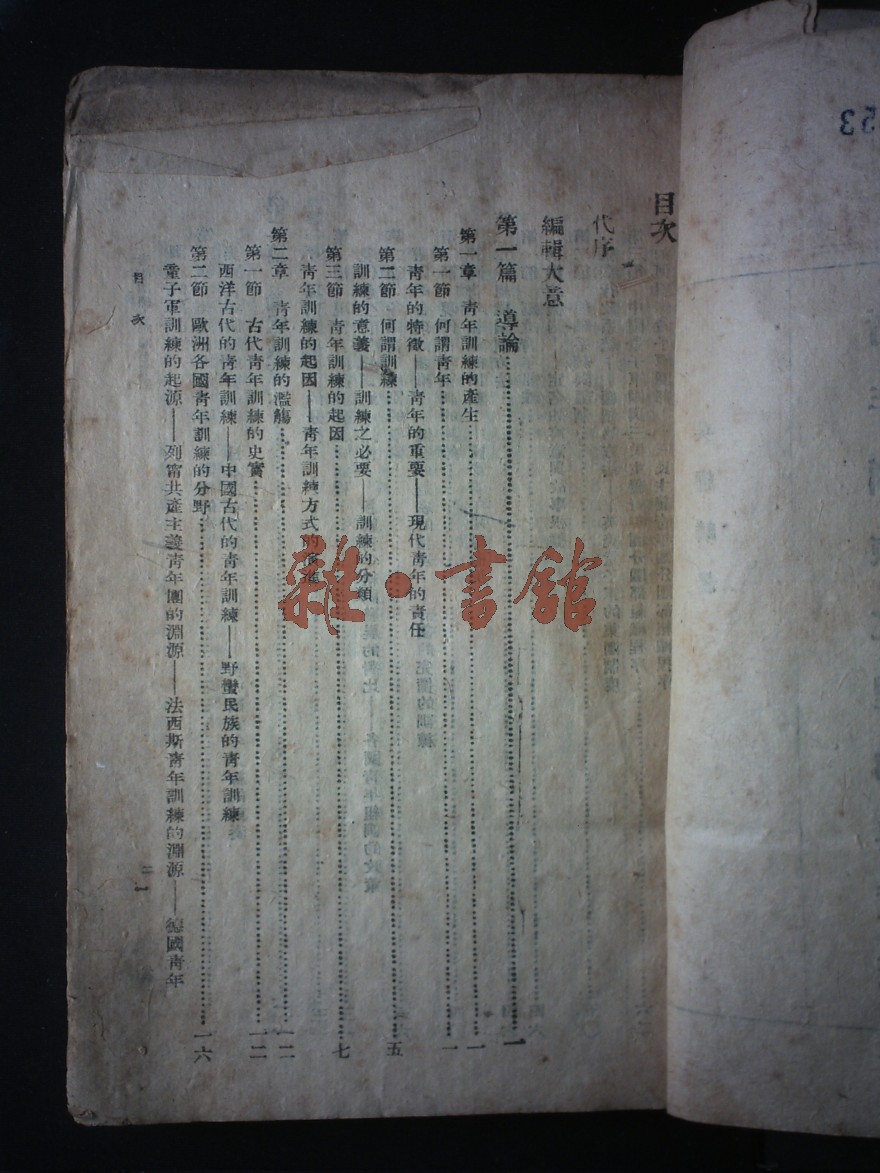 目次
代序
編輯大意
第一篇 導論……一
第一章 靑年訓練的產生……一
第一節 何謂靑年……一
靑年的特徵——靑年的重要——現代靑年的責任
第二節 何謂訓練……五
訓練的意義——訓練之必要——訓練的分類
第三節 靑年訓練的起因……七
靑年訓練的起因——靑年訓練方式的演進
第二章 靑年訓練的濫觴……一二
第一節 古代靑年訓練的史實……一二
西洋古代的靑年訓練——中國古代的靑年訓練——野蠻民族的靑年訓練
第二節 歐洲各國靑年訓練的分野……一六
童子軍訓練的起源——列甯共產主義靑年團的淵源——法西斯靑年訓練的淵源——德國靑年
目次
一
雜·書館
53